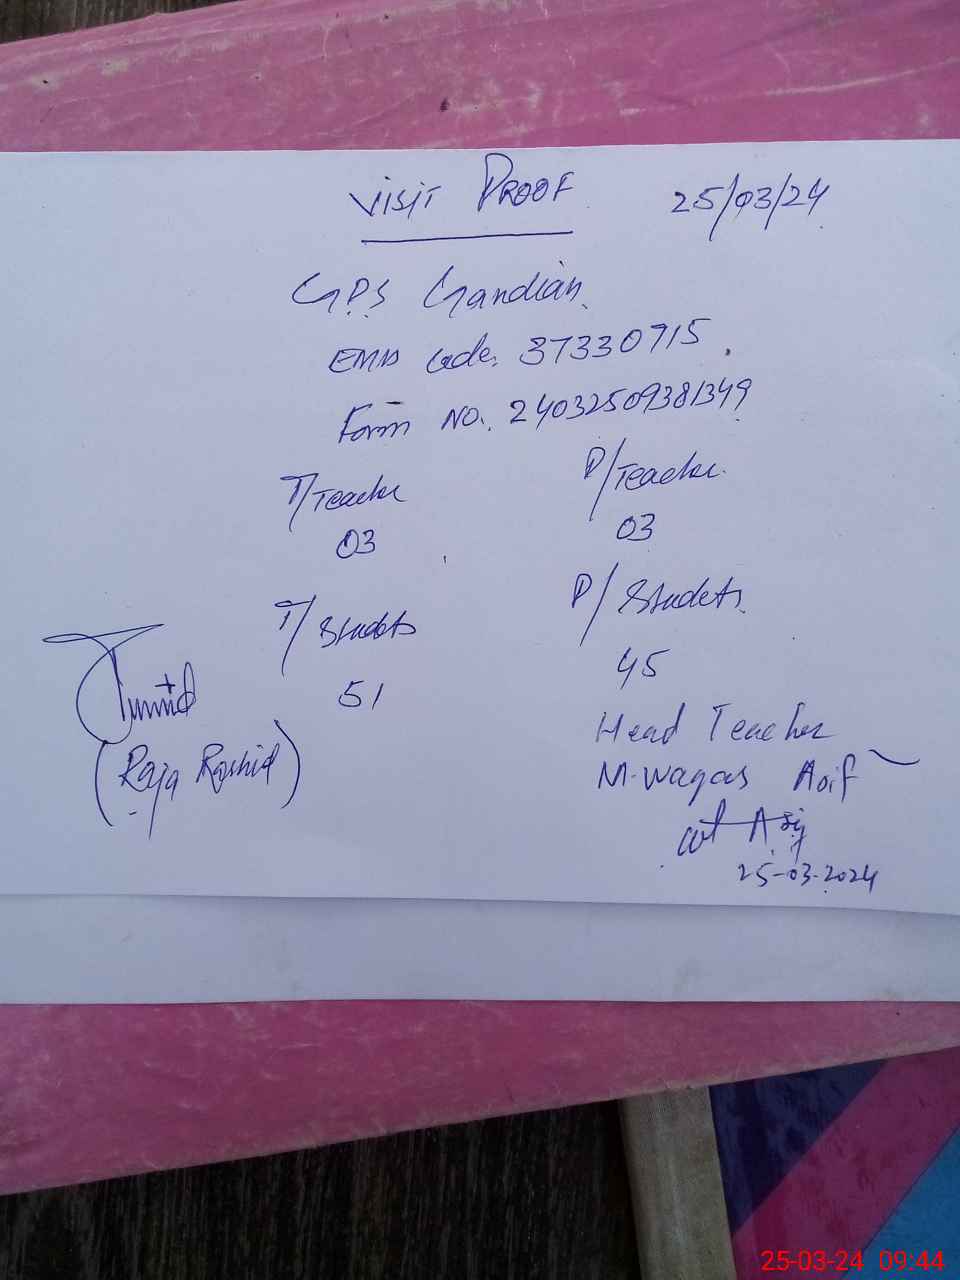 VISIT PROOF 25/03/24
GPS Gandian
EMIS Code. 37330715
Form NO. 24032509381349
T/Teacher P/Teacher
03 03
T/Studets P/Studets
51 45
(Raja Rashid)
Head Teacher
M. Waqas Asif
25-03-2024
25-03-24 09:44